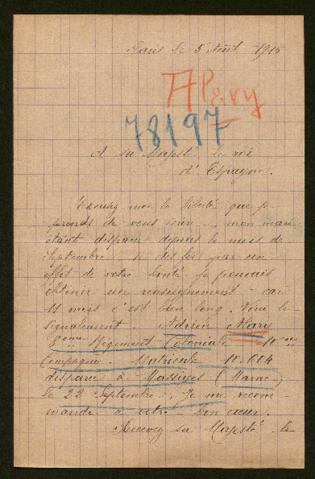 Paris le 5 Août 1915
A Pevy
78197
A sa Majesté le roi
d'Espagne.
Excusez moi la liberté que je
prends de vous écrire, mon mari
étant disparu depuis le mois de
Septembre. si des fois par un
effet de votre bonté je pouvais
obtenir un renseignement - car
11 mois c'est bien long. Voici le
signalement. Adrien Mary
8eme Régiment Coloniale
Compagnie. Matricule 18.604
disparu à Massiges (Marne)
le 22 Septembre. Je me recom-
mande à votre bon cœur.
Recevez sa Majesté le